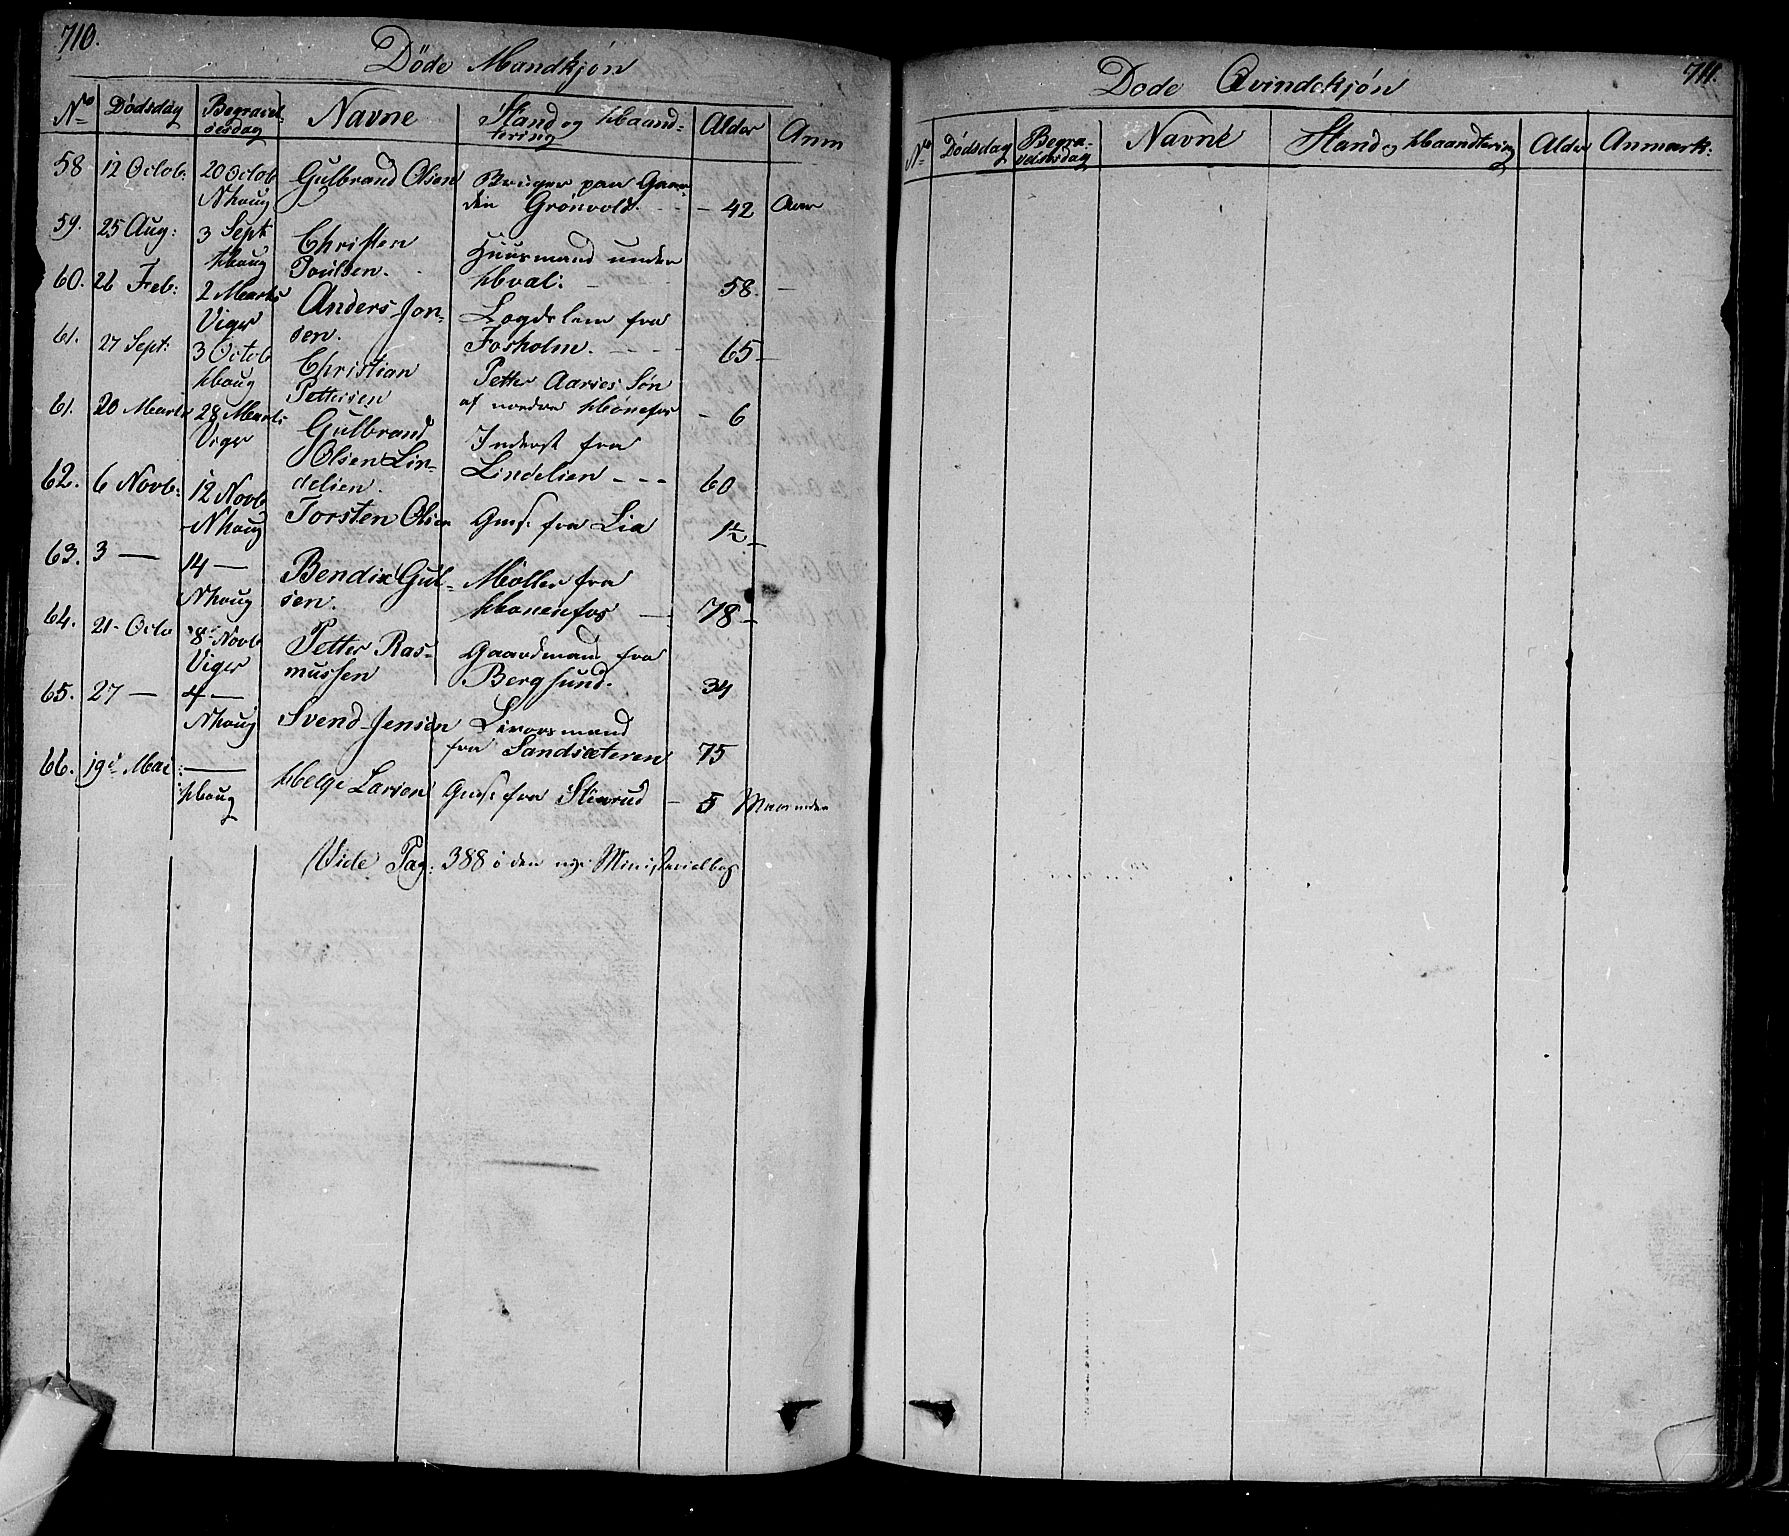 710.
Döde Mandkjön
No Dödsdag Begravelsesdag Navne Stand og Haandtering Alder Anm
58 12 Octob: 20 Octob Nhoug Gulbrand Olsen Bruger paa Gaarden Grönvold - 42
59. 25 Aug: 3 Sept Houg Christen Poulsen. Huusmand under Hval: - 58. -
60. 26 Feb: 2 Marts Viger Anders Jonsen. Logdslem fra Fosholm. - 65 -
61. 27 Sept: 3 Octob Houg Christian Pettersen Petter Aaries Sön af nordre Hönefos - 6
61. 20 Marts 28 Marts Viger Gulbrand Olsen Lindelien. Inderst fra Lindelien - - - 60
62. 6 Novb: 12 Novb Nhoug Torsten Olsen Gms. fra Lia 1½ -
63. 3 — 14 — Nhoug Bendix Gulsen. Möller fra Hönenfos - 78 -
64. 21 - Octo 8 Novb Viger Petter Rasmussen Gaardmand fra Bergsund. 34
65. 27 — 4 — Nhoug Svend Jensen fra Sandsæteren 75
66. 19 Mai — Houg Helge Larsen Gms. fra Steinrud - 5
Vide Pag: 388 i den nye Ministerialbog
711.
Dode Qvindekjön
No Dödsdag Begravelsesdag Navne Stand og Haandtering Alder Anmærk: